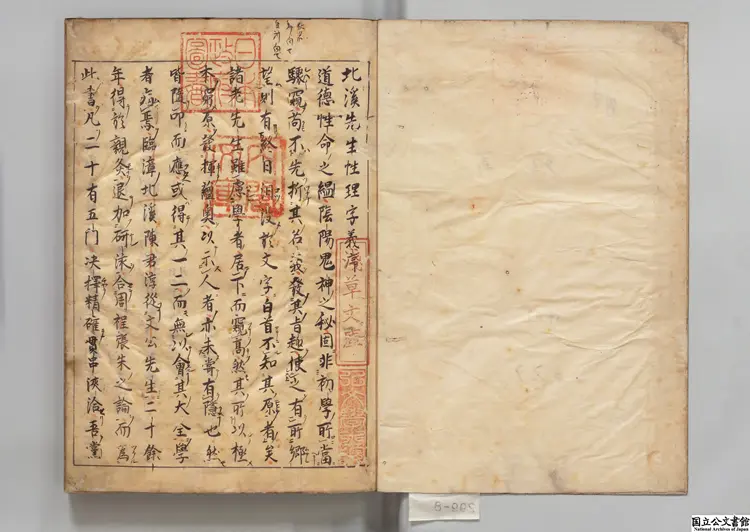 北溪先生性理字義
道德性命之縕陰陽鬼神之秘固非初學所當
驟窺苟不先折其名義發其旨趣使之有所鄉
望則有終日汩沒於文字白首不知其原者矣
諸老先生雖 學者居下而窺高然其所以極
本窮原發揮蘊奧以示人者亦未嘗有隱也然
皆隨叩而應或得其一二而無以會其大全學
者病焉臨漳北溪陳君淳從文公先生二十餘
年得於親灸退加研泳合周程張朱之論而為
此書凡二十有五門決擇精確貫串浹洽吾黨
日本政府圖書
淺草文庫
国立公文書館
National Archives of Japan